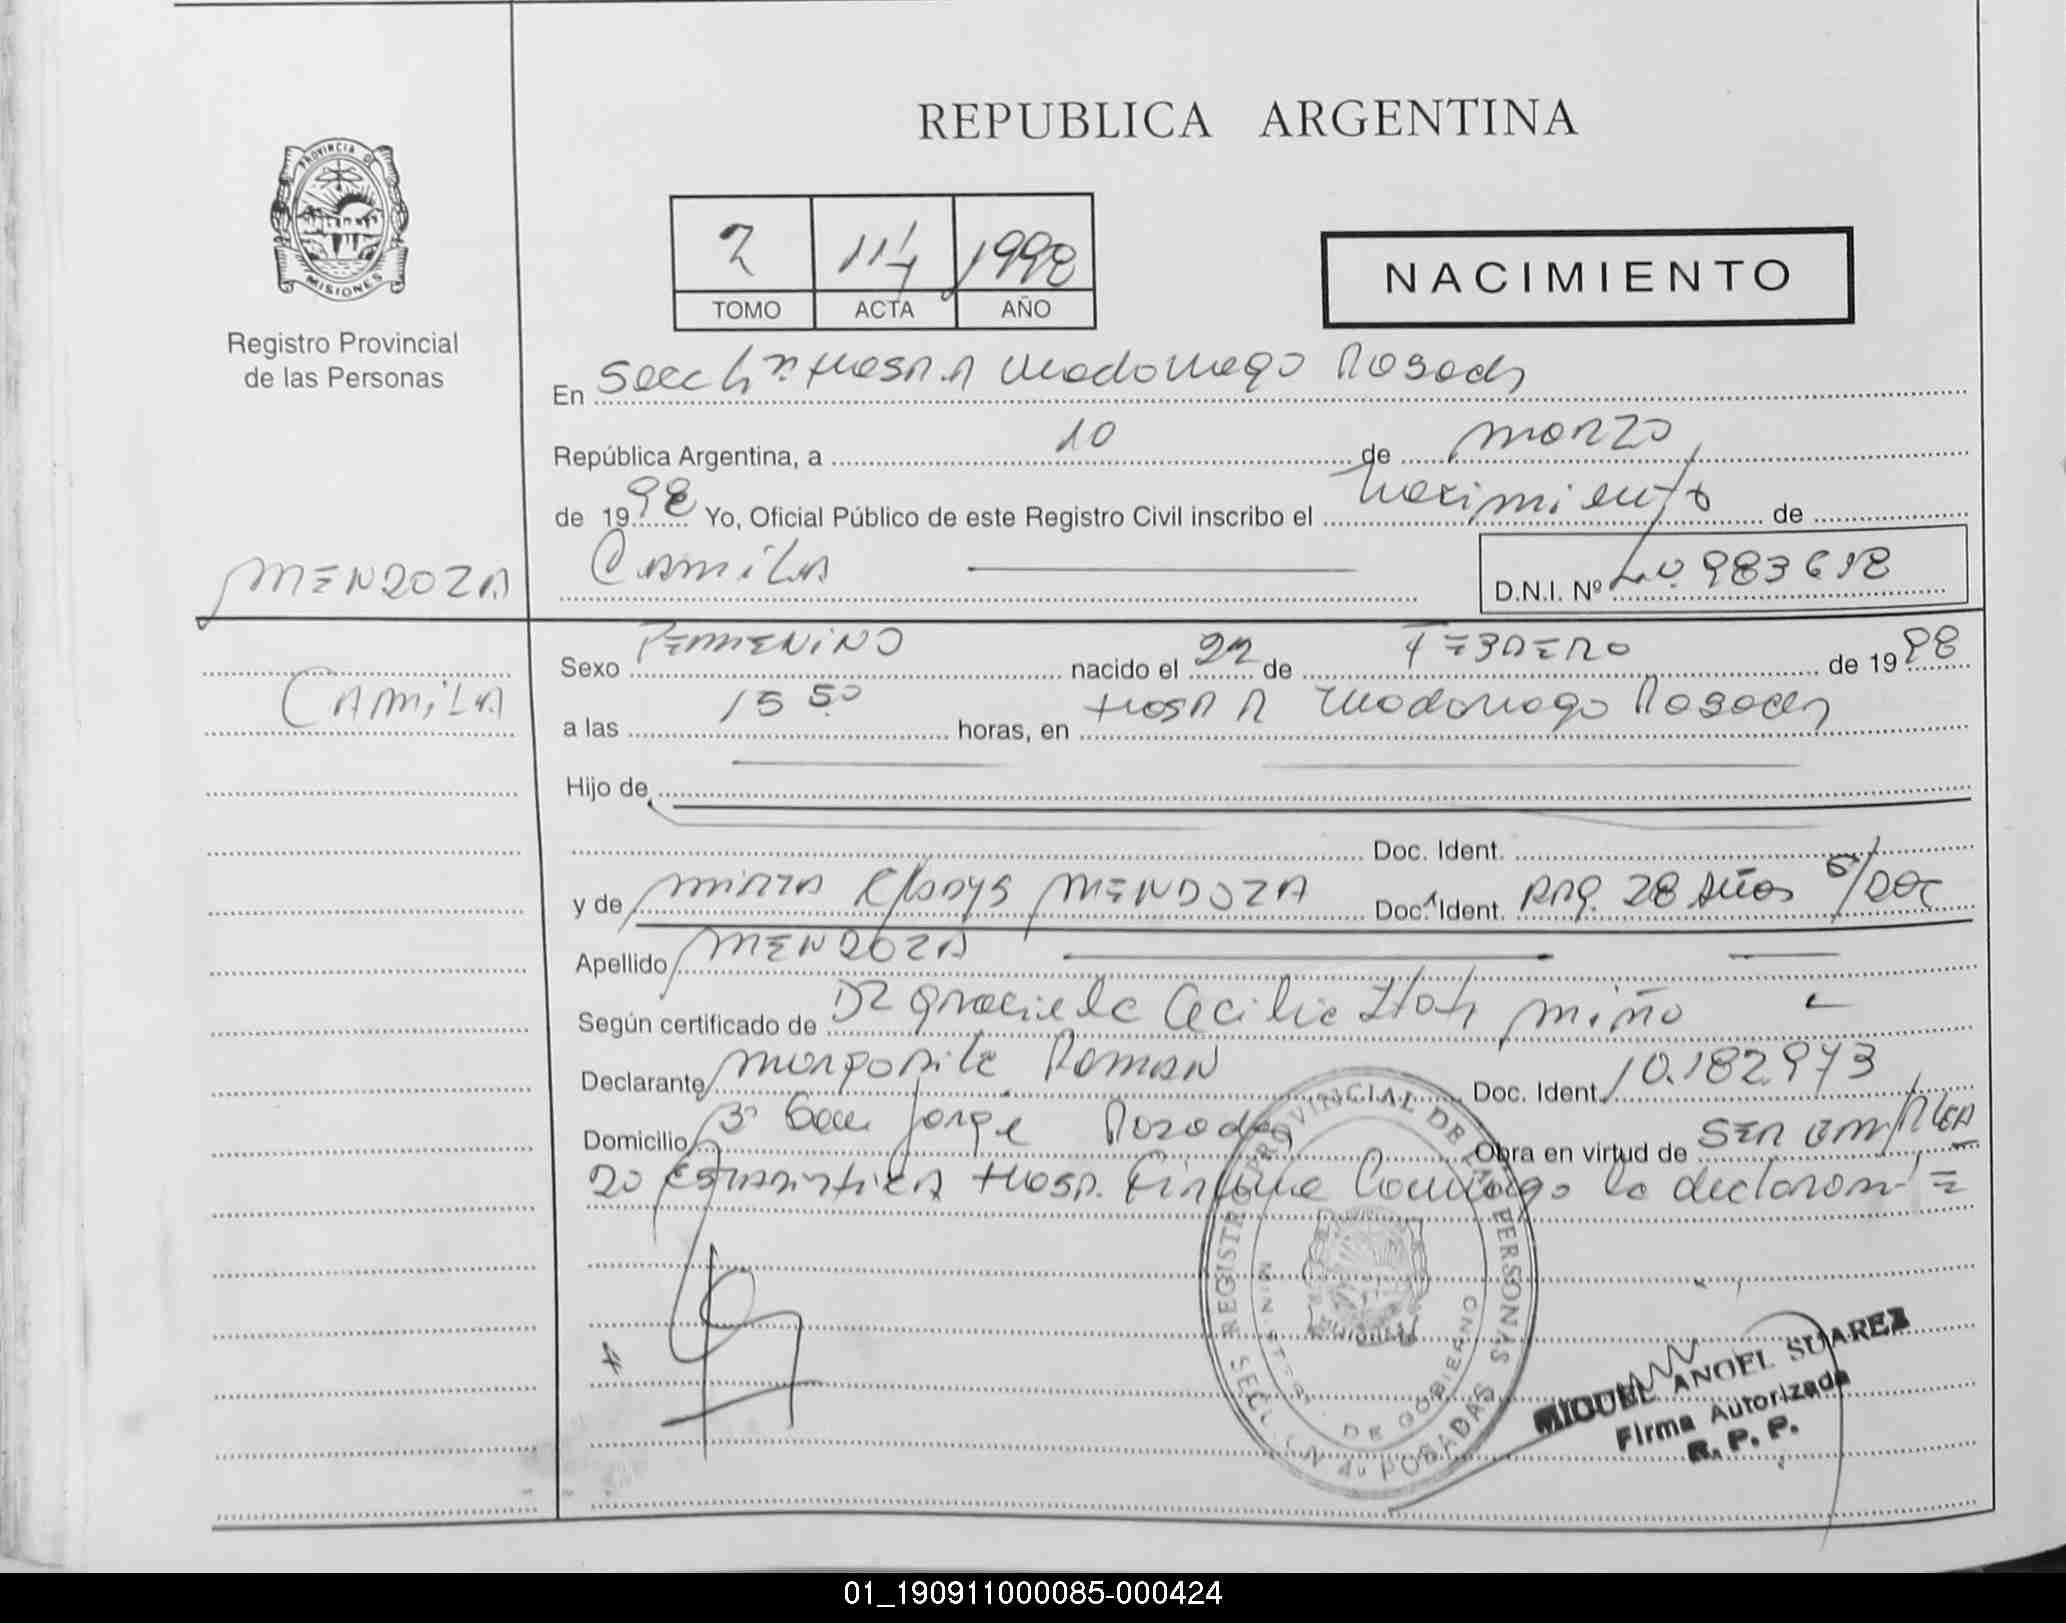 REPUBLICA ARGENTINA
PROVINCIA DE
MISIONES
Registro Provincial
de las Personas
2 114 1998
TOMO ACTA AÑO
NACIMIENTO
En Secc 4ª Hosp. R Madariaga Posadas
República Argentina, a 10 de marzo
de 1998 Yo, Oficial Público de este Registro Civil inscribo el nacimiento de
MENDOZA
Camila
D.N.I. Nº 40.983618
CAMILA
Sexo FEMENINO nacido el 22 de FEBRERO de 1998
a las 15 50 horas, en Hosp R Madariaga Posadas
Hijo de
Doc. Ident.
y de MIRTA Gladys MENDOZA Doc. Ident. Arg. 28 Años S/Doc
Apellido MENDOZA
Según certificado de Dr Graciela Cecilia Miño
Declarante Margarita Roman Doc. Ident. 10.182.973
Domicilio San Jorge Posadas Obra en virtud de SER EMPLEA
DO Estadistica Hosp. la declaran
REGISTRO PROVINCIAL DE LAS PERSONAS
MINISTERIO DE GOBIERNO
SECCION 4a POSADAS
MIGUEL ANGEL SUAREZ
Firma Autorizada
R. P. P.
01_190911000085-000424